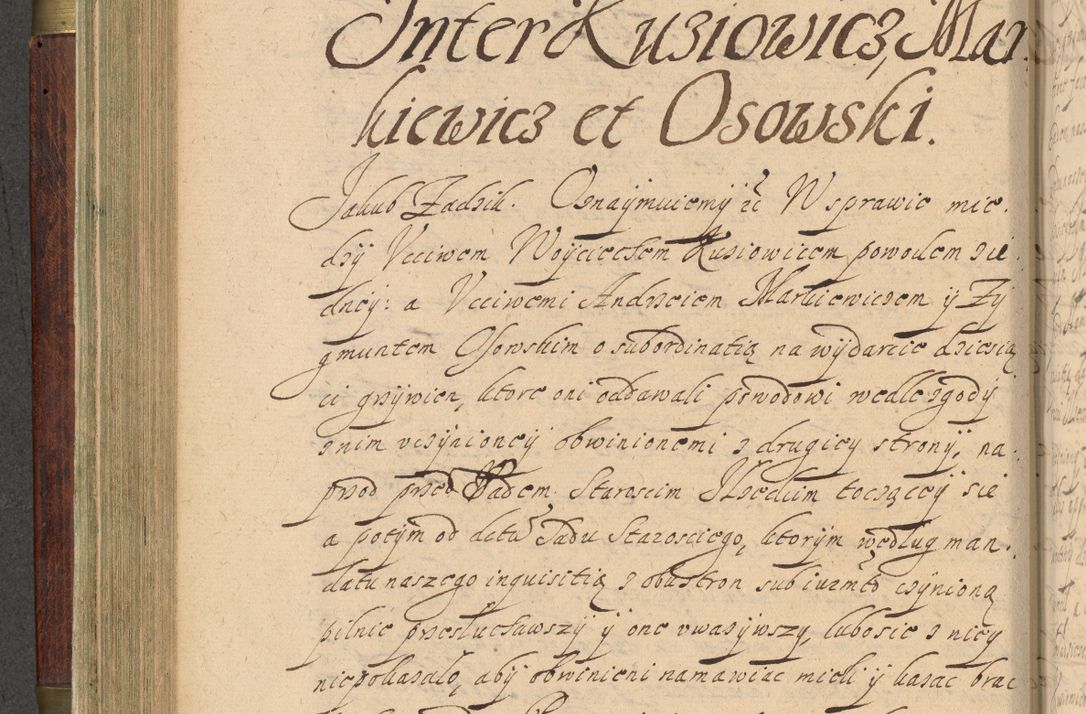 Inter Kuziowicz, Mar
kiewicz et Osowski.
Jakub Zadzik. Oznaymuiemÿ iż W sprawie mie.
dzÿ Vcciwem Woÿciechem Kuziowicem powodem z ie
dneÿ: a Vcciwemi Andrzeiem Markiewiczem ÿ Zÿ
gmuntem Osowskim o subordinatią na wÿdarcie dziesią
ci grzÿwien, ktore oni oddawali powodowi wedle zgodÿ
z nim vczÿnioneÿ obwinionemi z drugieÿ stronÿ, na
przod przed Vrzadem Staroscim Ilzeckim toczącey się
a potÿm od dctu Sadu Starosciego, ktorÿm według man.
datu naszego inquisitią z obustron sub iuzmto czÿnioną
pilnie przesłuchawszÿ ÿ one vwazÿwszy, lubosie z niey
niepokazało, abÿ obwinieni namawiac mieli ÿ kazac brac